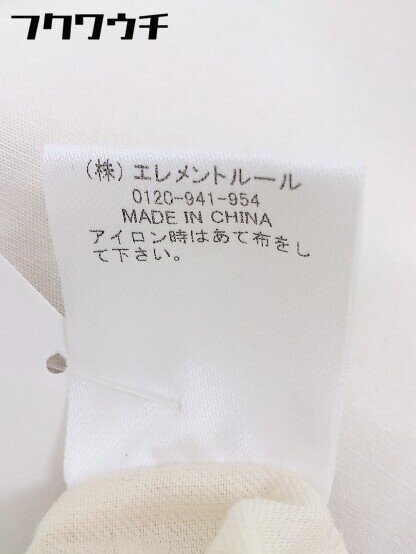 フクワウチ
(株)エレメントルール
0120-941-954
MADE IN CHINA
アイロン時はあて布をし
て下さい。